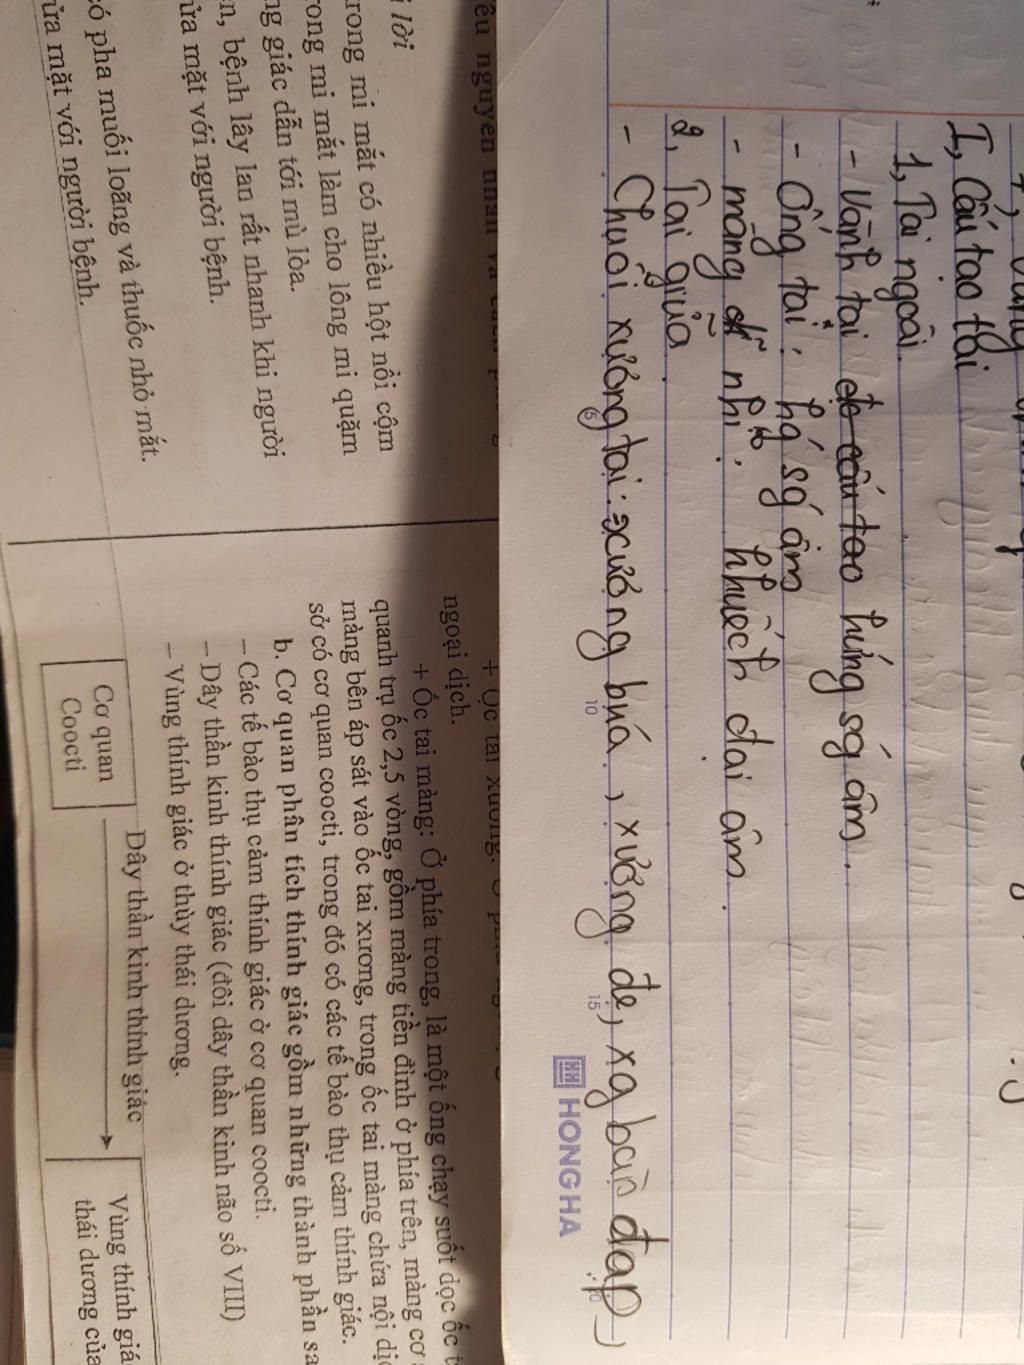 I, Cấu tạo tai
1, Tai ngoài.
- Vành tai đc cấu tạo hứng sg âm.
- Ống tai: hg sg âm
- màng nhĩ: khuếch đại âm.
2, Tai giữa
- Chuỗi xương tai: xương búa, xương đe, xg bàn đạp
5
10
15
HONG HA
êu nguyên nhân và
i lời
trong mi mắt có nhiều hột nổi cộm
rong mi mắt làm cho lông mi quặm
ng giác dẫn tới mù lòa.
n, bệnh lây lan rất nhanh khi người
ửa mặt với người bệnh.
có pha muối loãng và thuốc nhỏ mắt.
ửa mặt với người bệnh.
+ Ốc tai xương:
ngoại dịch.
+ Ốc tai màng: Ở phía trong, là một ống chạy suốt dọc ốc
quanh trụ ốc 2,5 vòng, gồm màng tiền đình ở phía trên, màng cơ
màng bên áp sát vào ốc tai xương, trong ốc tai màng chứa nội
sở có cơ quan coocti, trong đó có các tế bào thụ cảm thính giác.
b. Cơ quan phân tích thính giác gồm những thành phần
– Các tế bào thụ cảm thính giác ở cơ quan coocti.
– Dây thần kinh thính giác (đôi dây thần kinh não số VIII)
– Vùng thính giác ở thùy thái dương.
Cơ quan
Coocti
Dây thần kinh thính giác
Vùng thính
thái dương của